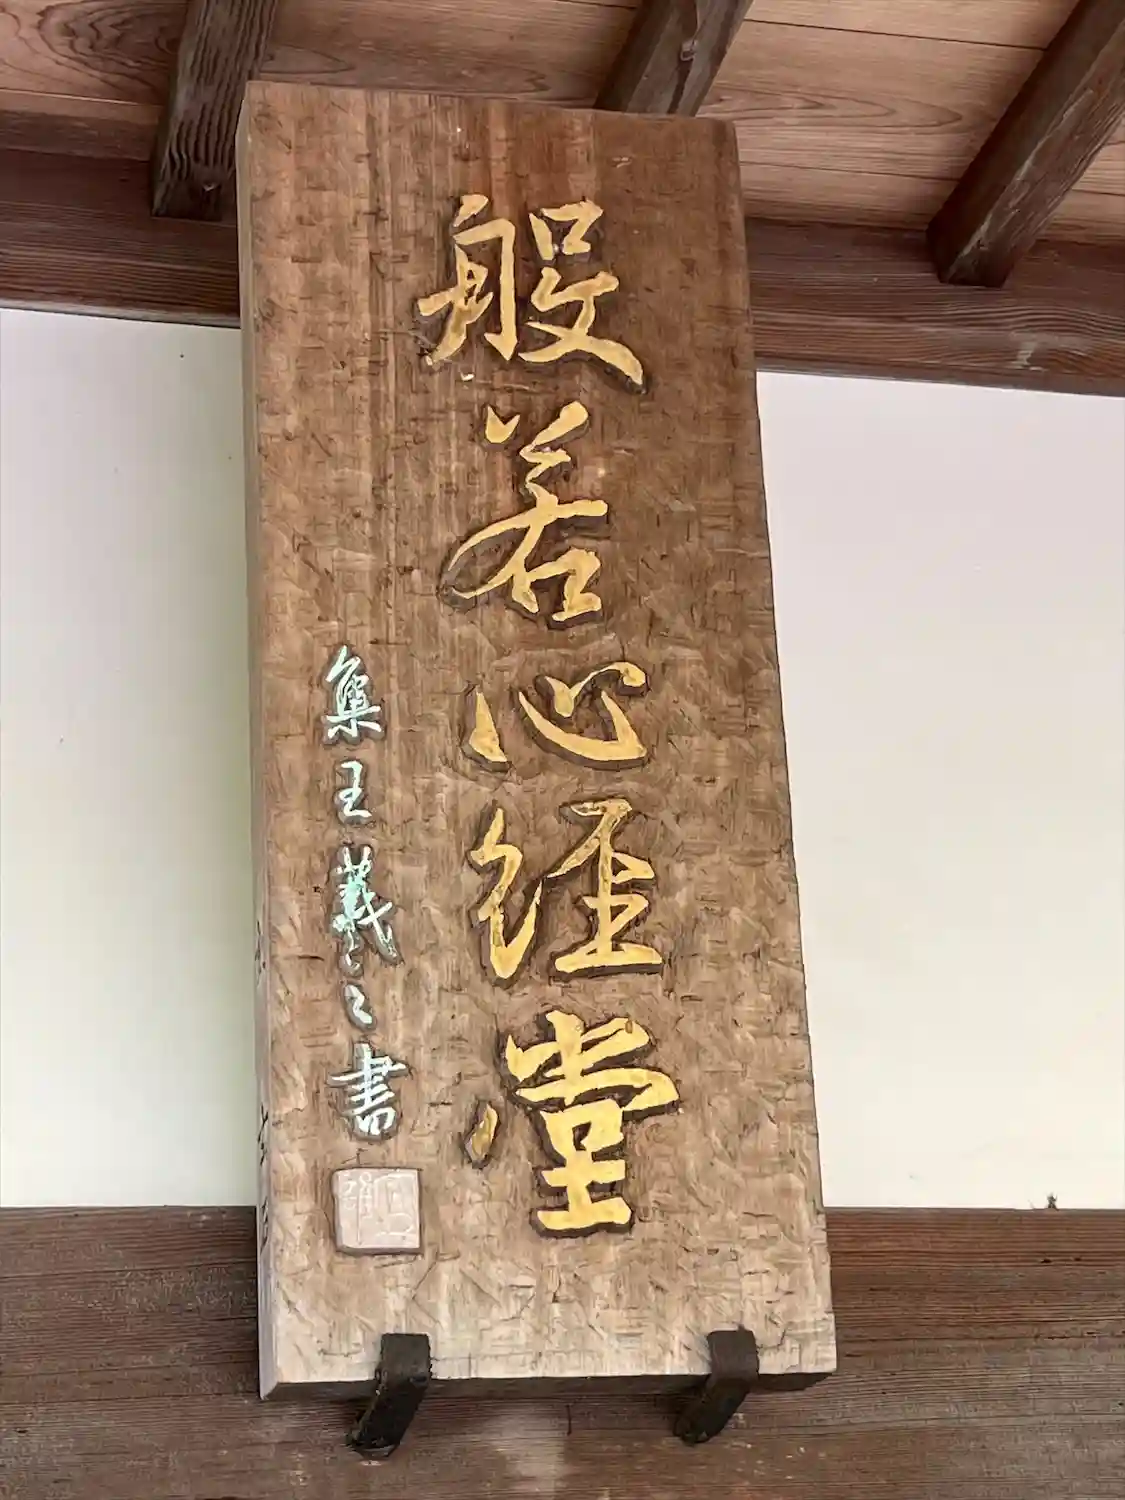 般若心経堂
集王羲之書